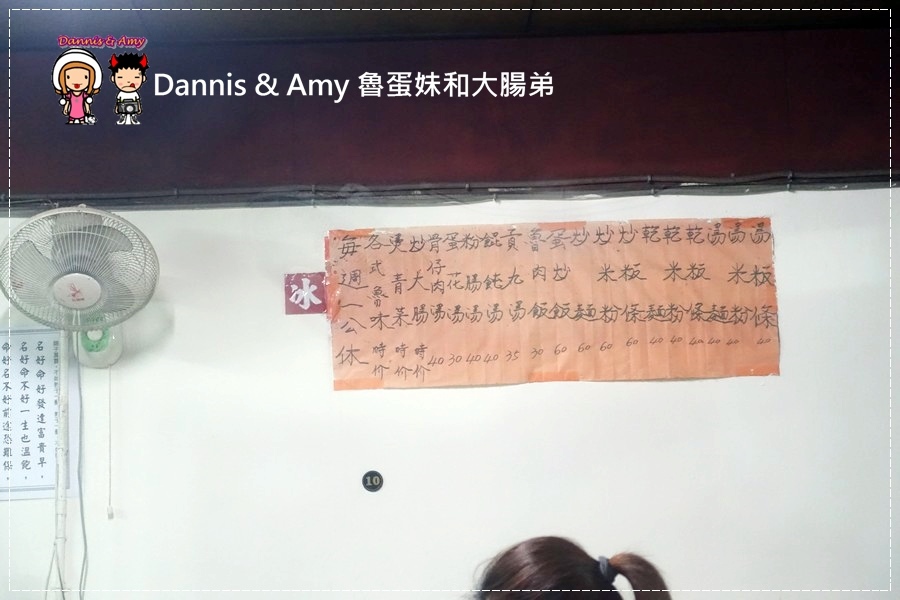 Dannis & Amy
Dannis & Amy 魯蛋妹和大腸弟
湯粄條 40
湯米粉 40
湯麵 40
乾粄條 40
乾米粉 40
乾麵 40
炒粄條 60
炒米粉 60
炒麵 60
蛋炒飯 60
魯肉飯 30
貢丸湯 35
餛飩湯 40
粉腸湯 40
蛋花湯 30
骨仔肉湯 40
炒大腸 時价
燙青菜 時价
各式魯味 時价
每週一公休
冰
名好命好發達富貴早。
名好命不好一生也溫飽。
命好名不好前途恐難保。
10